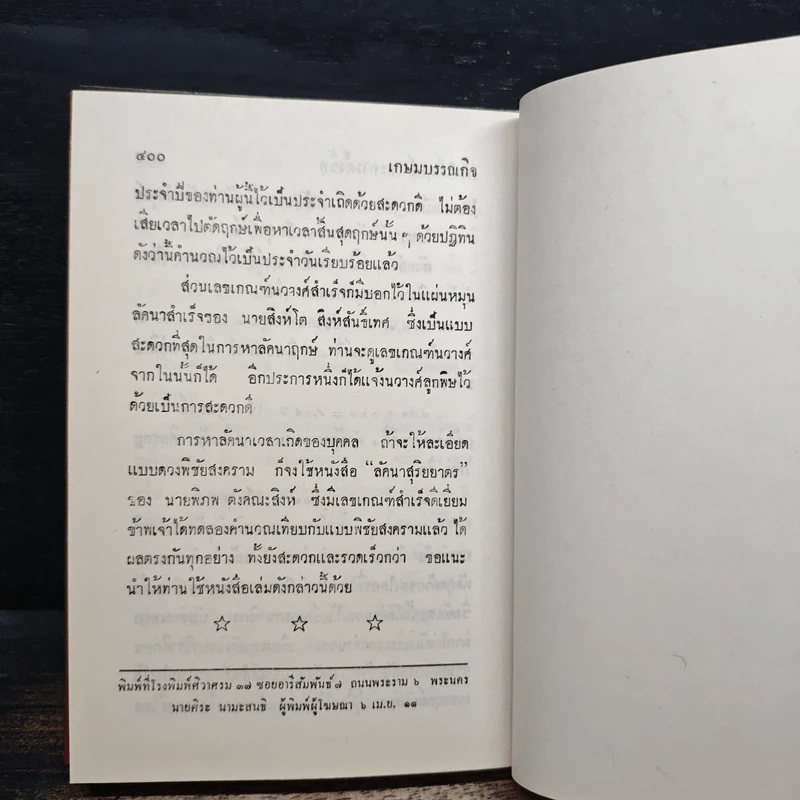 ๔๐๐ เกษมบรรณกิจ
ประจำปีของท่านผู้นี้ไว้เป็นประจำเถิดด้วยสะดวกดี ไม่ต้อง
เสียเวลาไปตัดฤกษ์เพื่อหาเวลาสิ้นสุดฤกษ์นั้น ๆ ด้วยปฏิทิน
ดังว่านี้คำนวณไว้เป็นประจำวันเรียบร้อยแล้ว
ส่วนเลขเกณฑ์นวางค์สำเร็จก็มีบอกไว้ในแผ่นหมุน
ลัคนาสำเร็จของ นายสิงห์โต สิงห์สันธิ์เทศ ซึ่งเป็นแบบ
สะดวกที่สุดในการหาลัคนาฤกษ์ ท่านจะดูเลขเกณฑ์นวางค์
จากในนั้นก็ได้ อีกประการหนึ่งก็ได้แจ้งนวางค์ลูกพิษไว้
ด้วยเป็นการสะดวกดี
การหาลัคนาเวลาเกิดของบุคคล ถ้าจะให้ละเอียด
แบบดวงพิชัยสงคราม ก็จงใช้หนังสือ “ลัคนาสุริยยาตร”
ของ นายพิภพ ตังคณะสิงห์ ซึ่งมีเลขเกณฑ์สำเร็จดีเยี่ยม
ข้าพเจ้าได้ทดลองคำนวณเทียบกับแบบพิชัยสงครามแล้ว ได้
ผลตรงกันทุกอย่าง ทั้งยังสะดวกและรวดเร็วกว่า ขอแนะ
นำให้ท่านใช้หนังสือเล่มดังกล่าวนี้ด้วย
พิมพ์ที่โรงพิมพ์ศิวาศรม ๓๗ ซอยอารีสัมพันธ์ ๗ ถนนพระราม ๖ พระนคร
นายศิระ นามะสนธิ ผู้พิมพ์ผู้โฆษณา ๖ เม.ย. ๑๑